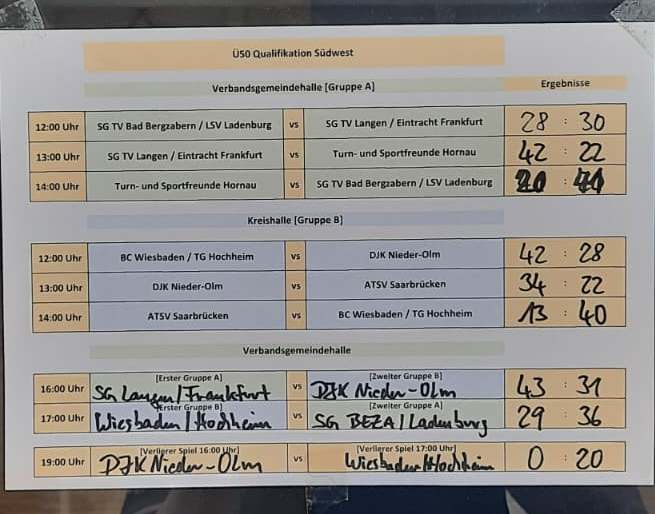 Ü50 Qualifikation Südwest
Verbandsgemeindehalle [Gruppe A] Ergebnisse
12:00 Uhr SG TV Bad Bergzabern / LSV Ladenburg vs SG TV Langen / Eintracht Frankfurt 28 : 30
13:00 Uhr SG TV Langen / Eintracht Frankfurt vs Turn- und Sportfreunde Hornau 42 : 22
14:00 Uhr Turn- und Sportfreunde Hornau vs SG TV Bad Bergzabern / LSV Ladenburg :
Kreishalle [Gruppe B]
12:00 Uhr BC Wiesbaden / TG Hochheim vs DJK Nieder-Olm 42 : 28
13:00 Uhr DJK Nieder-Olm vs ATSV Saarbrücken 34 : 22
14:00 Uhr ATSV Saarbrücken vs BC Wiesbaden / TG Hochheim 13 : 40
Verbandsgemeindehalle
[Erster Gruppe A] [Zweiter Gruppe B]
16:00 Uhr SG Langen/Frankfurt vs DJK Nieder-Olm 43 : 31
[Erster Gruppe B] [Zweiter Gruppe A]
17:00 Uhr Wiesbaden/Hochheim vs SG BEZA/Ladenburg 29 : 36
[Verlierer Spiel 16:00 Uhr] [Verlierer Spiel 17:00 Uhr]
19:00 Uhr DJK Nieder-Olm vs Wiesbaden/Hochheim 0 : 20